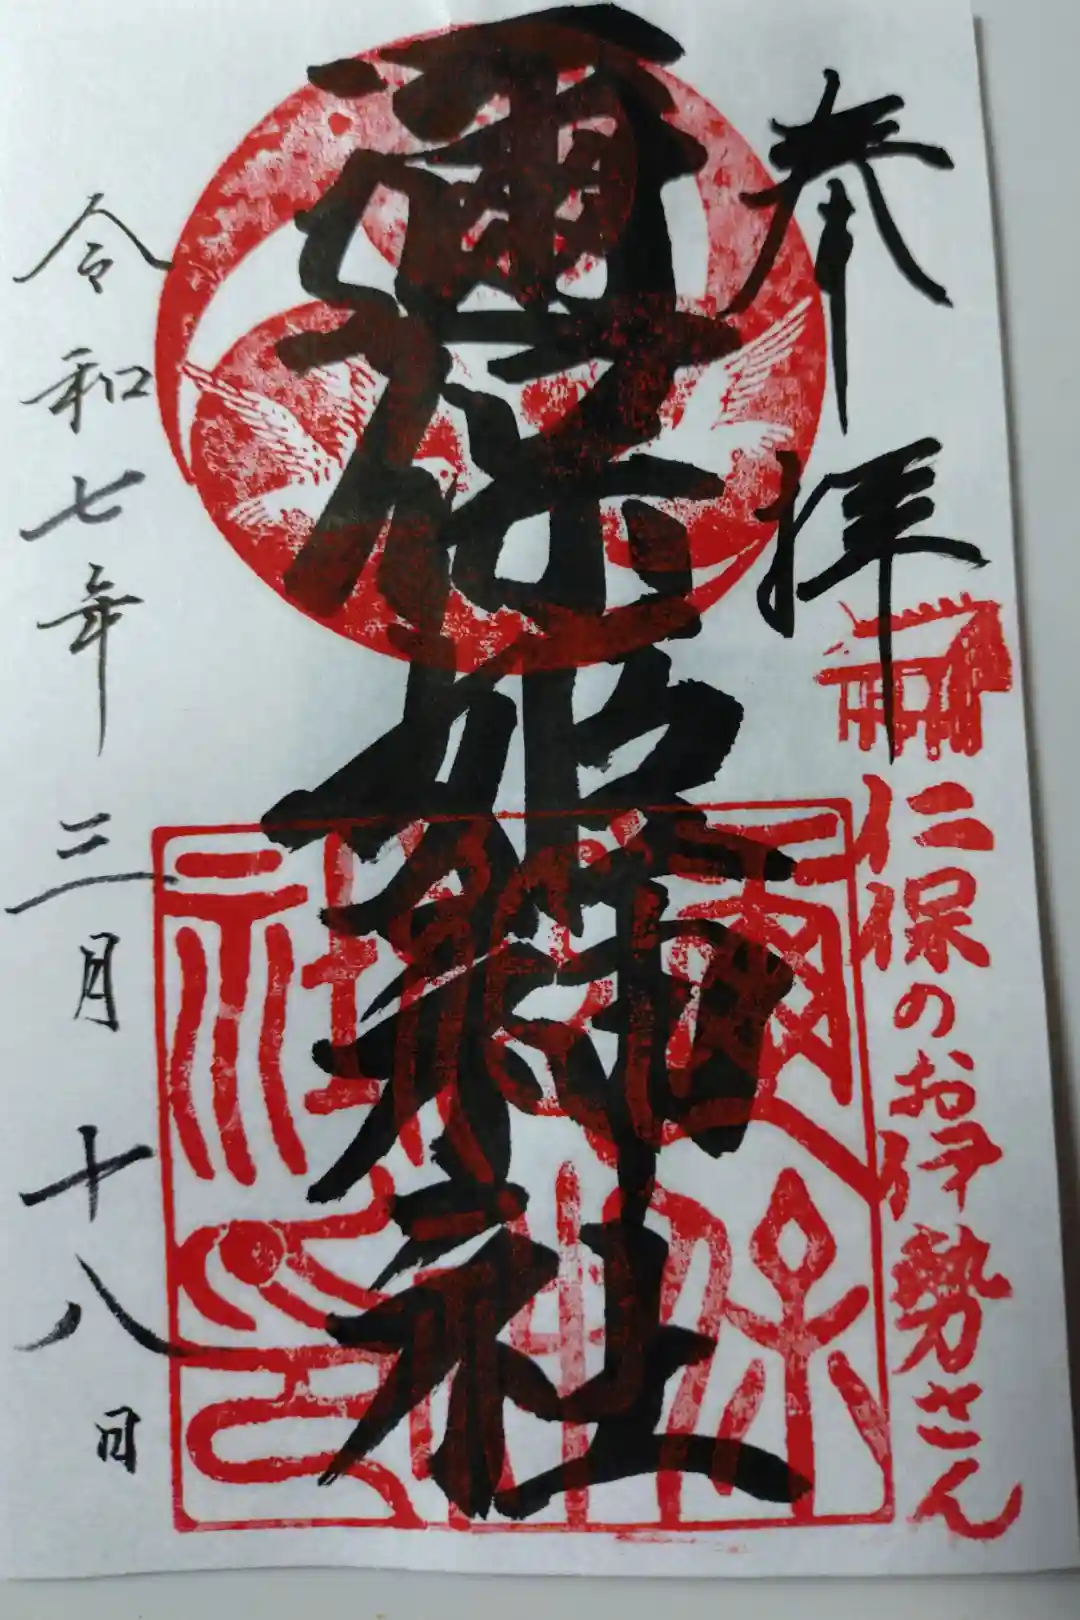 奉拝
仁保のお伊勢さん
爾保姫神社
令和七年三月十八日